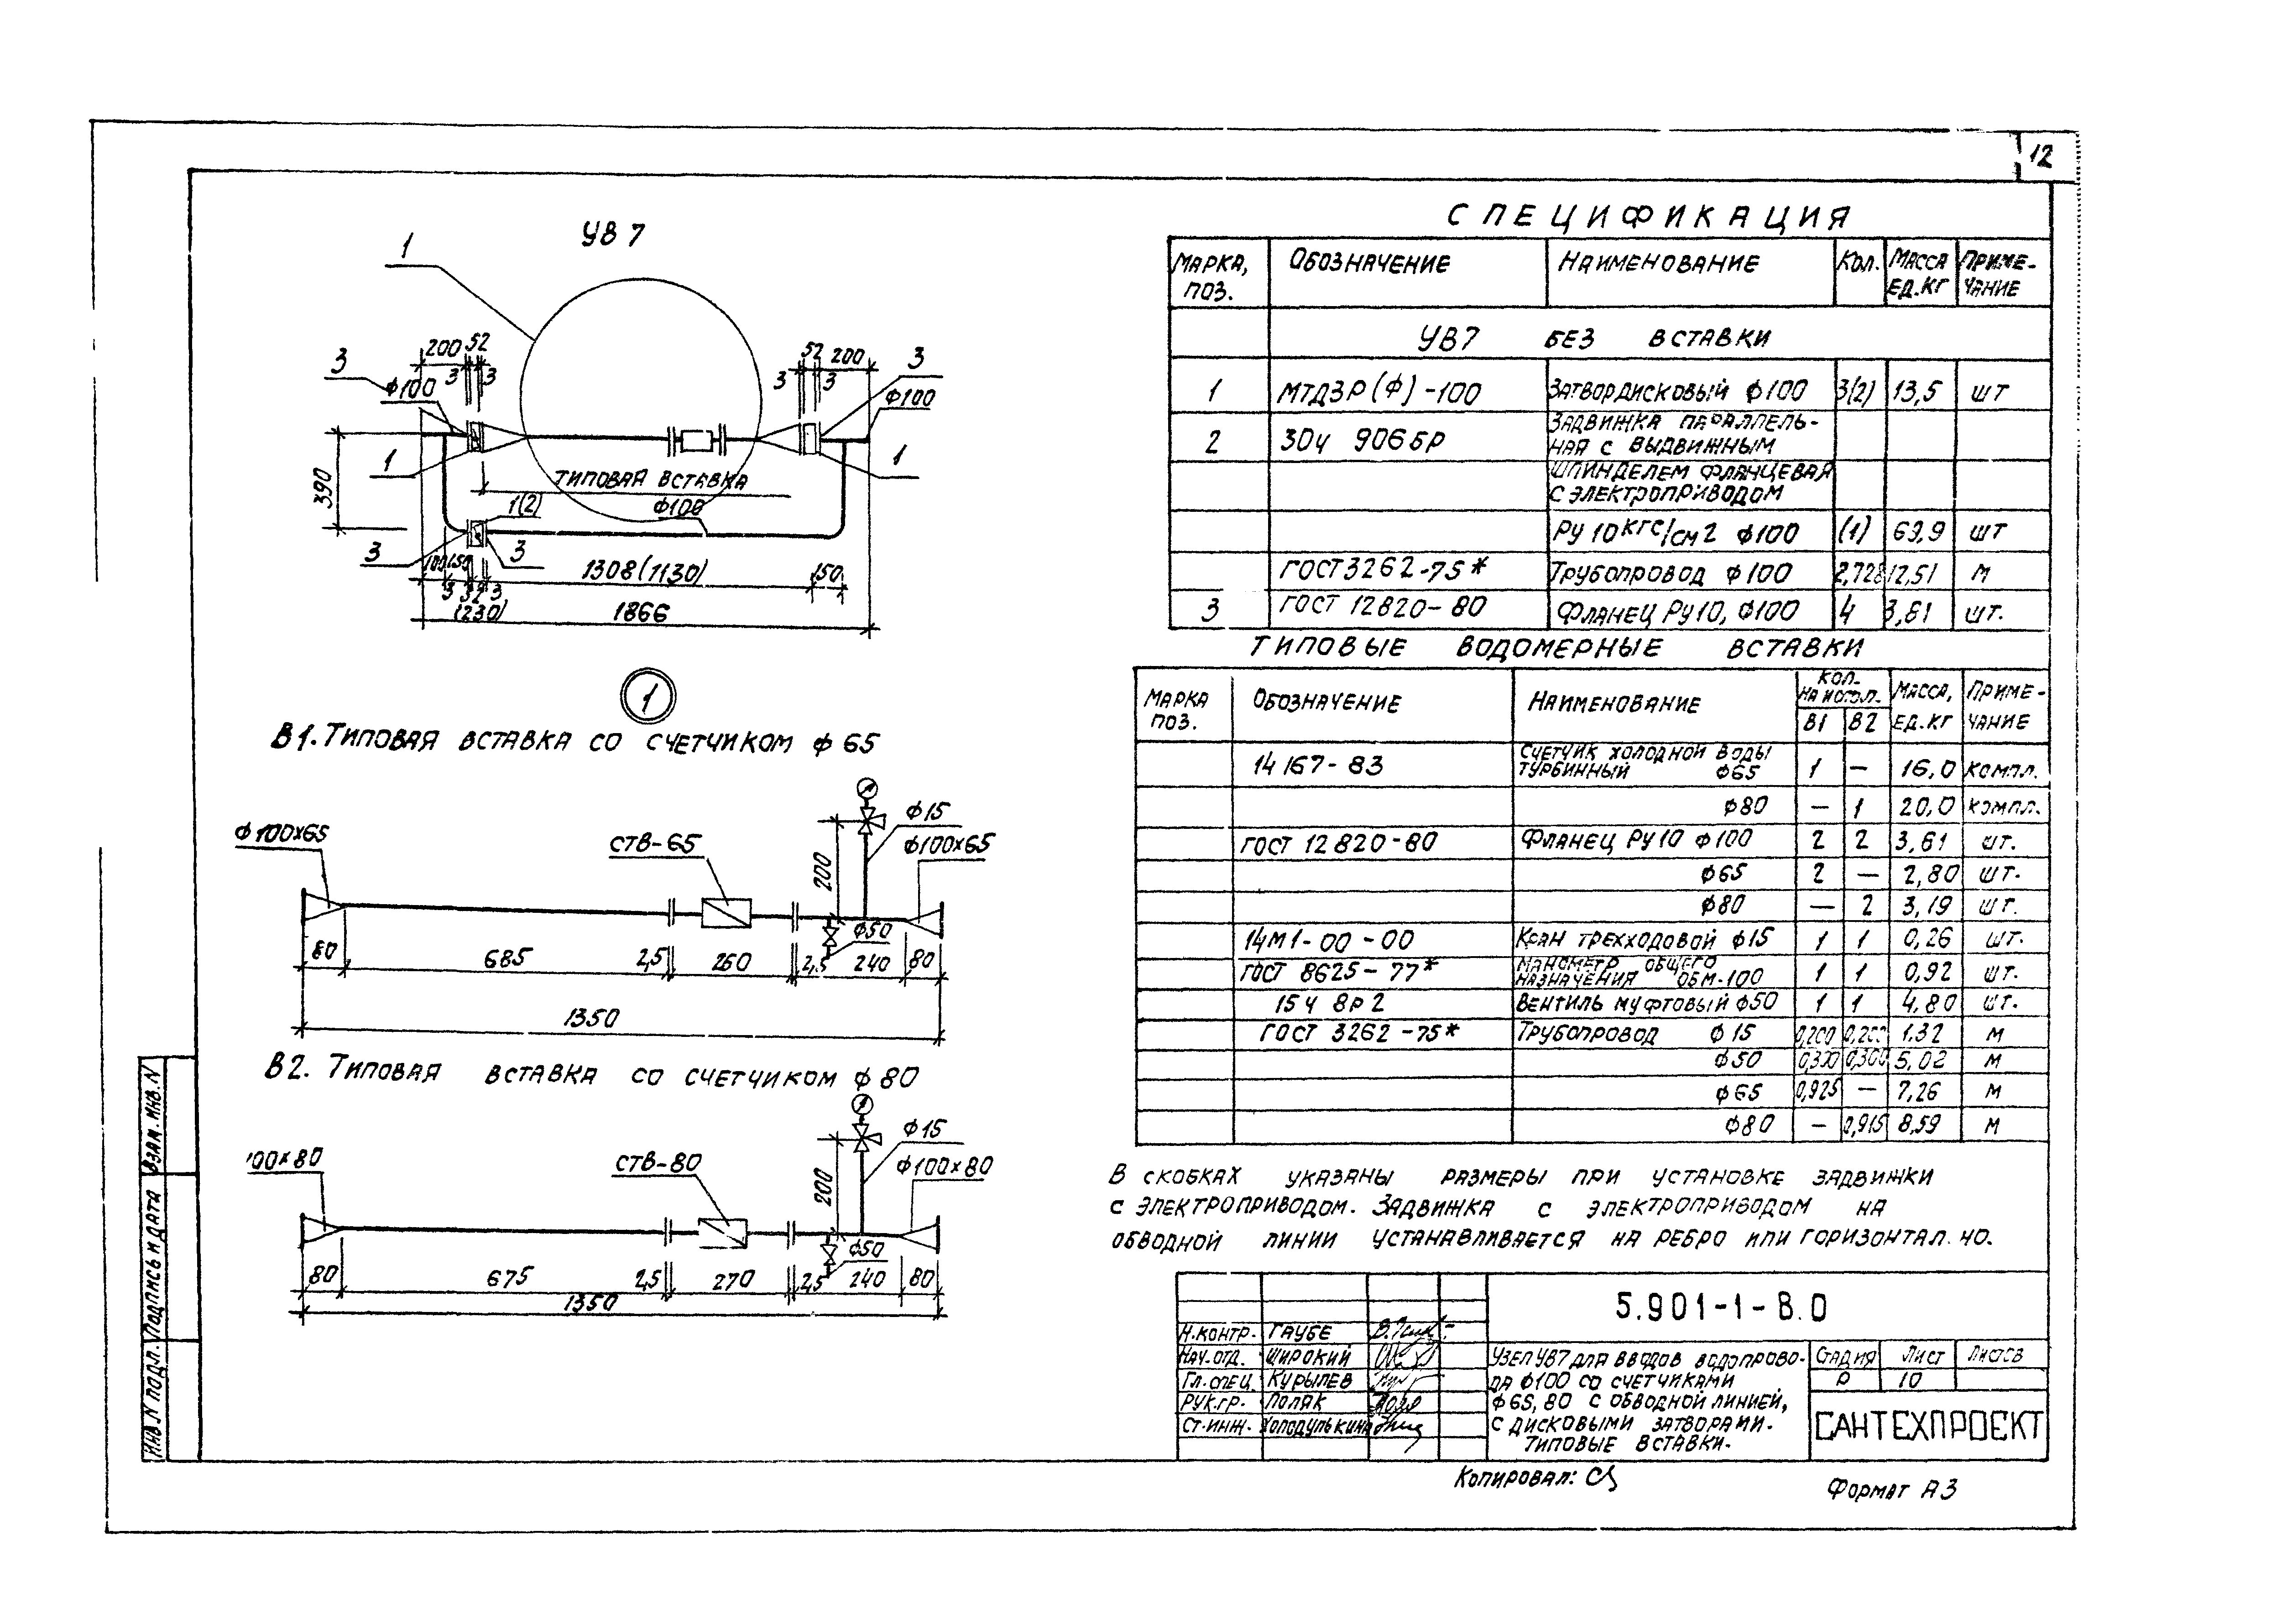 12
УВ 7
1
200 52
3
3 3
ф100
52 200
3
3 3
ф100
1
1
390
ТИПОВАЯ ВСТАВКА
1(2)
ф100
3
3
100 150
1308(1130)
150
3 52 3
(230)
1866
1
В1. ТИПОВАЯ ВСТАВКА СО СЧЕТЧИКОМ ф 65
ф100х65
СТВ-65
ф15
ф100х65
200
ф50
80 685 2,5 260 2,5 240 80
1350
В2. ТИПОВАЯ ВСТАВКА СО СЧЕТЧИКОМ ф 80
100х80
СТВ-80
ф15
ф100х80
200
ф50
80 675 2,5 270 2,5 240 80
1350
СПЕЦИФИКАЦИЯ
МАРКА, ПОЗ. ОБОЗНАЧЕНИЕ НАИМЕНОВАНИЕ КОЛ. МАССА ЕД.КГ ПРИМЕ-ЧАНИЕ
УВ7 БЕЗ ВСТАВКИ
1 МТДЗР(Ф)-100 ЗАТВОР ДИСКОВЫЙ ф100 3(2) 13,5 ШТ
2 30ч 906БР ЗАДВИЖКА ПАРАЛЛЕЛЬ-
НАЯ С ВЫДВИЖНЫМ
ШПИНДЕЛЕМ ФЛАНЦЕВАЯ
С ЭЛЕКТРОПРИВОДОМ
РУ 10 КГС/СМ2 ф100 (1) 69,9 ШТ
ГОСТ 3262-75* ТРУБОПРОВОД ф100 2,728 12,51 М
3 ГОСТ 12820-80 ФЛАНЕЦ РУ10, ф100 4 3,61 ШТ.
ТИПОВЫЕ ВОДОМЕРНЫЕ ВСТАВКИ
МАРКА ПОЗ. ОБОЗНАЧЕНИЕ НАИМЕНОВАНИЕ КОЛ. НА ИСПОЛ. В1 В2 МАССА, ЕД.КГ ПРИМЕ-ЧАНИЕ
14167-83 СЧЕТЧИК ХОЛОДНОЙ ВОДЫ
ТУРБИННЫЙ ф65 1 — 16,0 КОМПЛ.
ф80 — 1 20,0 КОМПЛ.
ГОСТ 12820-80 ФЛАНЕЦ РУ10 ф100 2 2 3,61 ШТ.
ф65 2 — 2,80 ШТ.
ф80 — 2 3,19 ШТ.
14М1-00-00 КРАН ТРЕХХОДОВОЙ ф15 1 1 0,26 ШТ.
ГОСТ 8625-77* МАНОМЕТР ОБЩЕГО
НАЗНАЧЕНИЯ ОБМ-100 1 1 0,92 ШТ.
15ч 8Р2 ВЕНТИЛЬ МУФТОВЫЙ ф50 1 1 4,80 ШТ.
ГОСТ 3262-75* ТРУБОПРОВОД ф15 0,200 0,200 1,32 М
ф50 0,300 0,300 5,02 М
ф65 0,925 — 7,26 М
ф80 — 0,915 8,59 М
В СКОБКАХ УКАЗАНЫ РАЗМЕРЫ ПРИ УСТАНОВКЕ ЗАДВИЖКИ
С ЭЛЕКТРОПРИВОДОМ. ЗАДВИЖКА С ЭЛЕКТРОПРИВОДОМ НА
ОБВОДНОЙ ЛИНИИ УСТАНАВЛИВАЕТСЯ НА РЕБРО ИЛИ ГОРИЗОНТАЛ.НО.
5.901-1-В.0
Н.КОНТР. ГАУБЕ
НАЧ.ОТД. ШИРОКИЙ
ГЛ.СПЕЦ. КУРЫЛЕВ
РУК.ГР. ПОЛЯК
СТ.ИНЖ. ХОЛОДУЛЬКИНА
УЗЕЛ УВ7 ДЛЯ ВВОДОВ ВОДОПРОВО-
ДА ф100 СО СЧЕТЧИКАМИ
ф65, 80 С ОБВОДНОЙ ЛИНИЕЙ,
С ДИСКОВЫМИ ЗАТВОРАМИ.
ТИПОВЫЕ ВСТАВКИ.
СТАДИЯ ЛИСТ ЛИСТОВ
Р 10
САНТЕХПРОЕКТ
КОПИРОВАЛ:
ФОРМАТ А3
ВЗАМ. ИНВ.N
ПОДПИСЬ И ДАТА
ИНВ.N ПОДЛ.